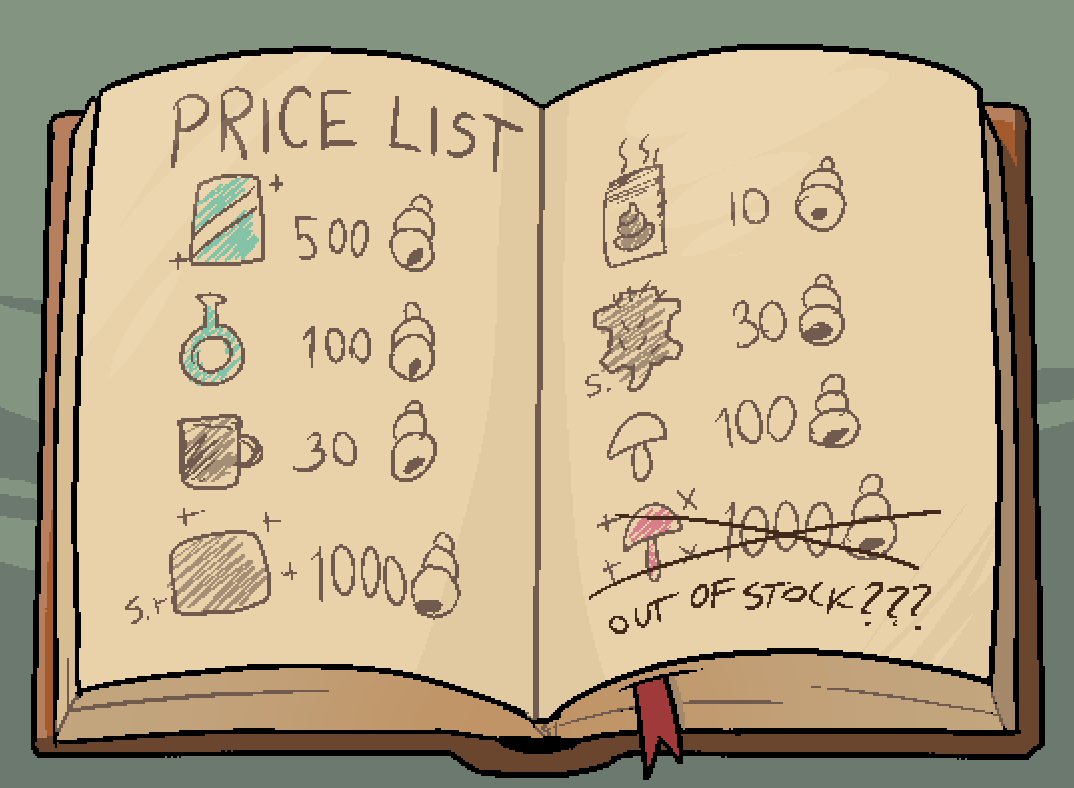 PRICE LIST
500
100
30
S.r 1000
10
30
S.
100
1000
OUT OF STOCK???